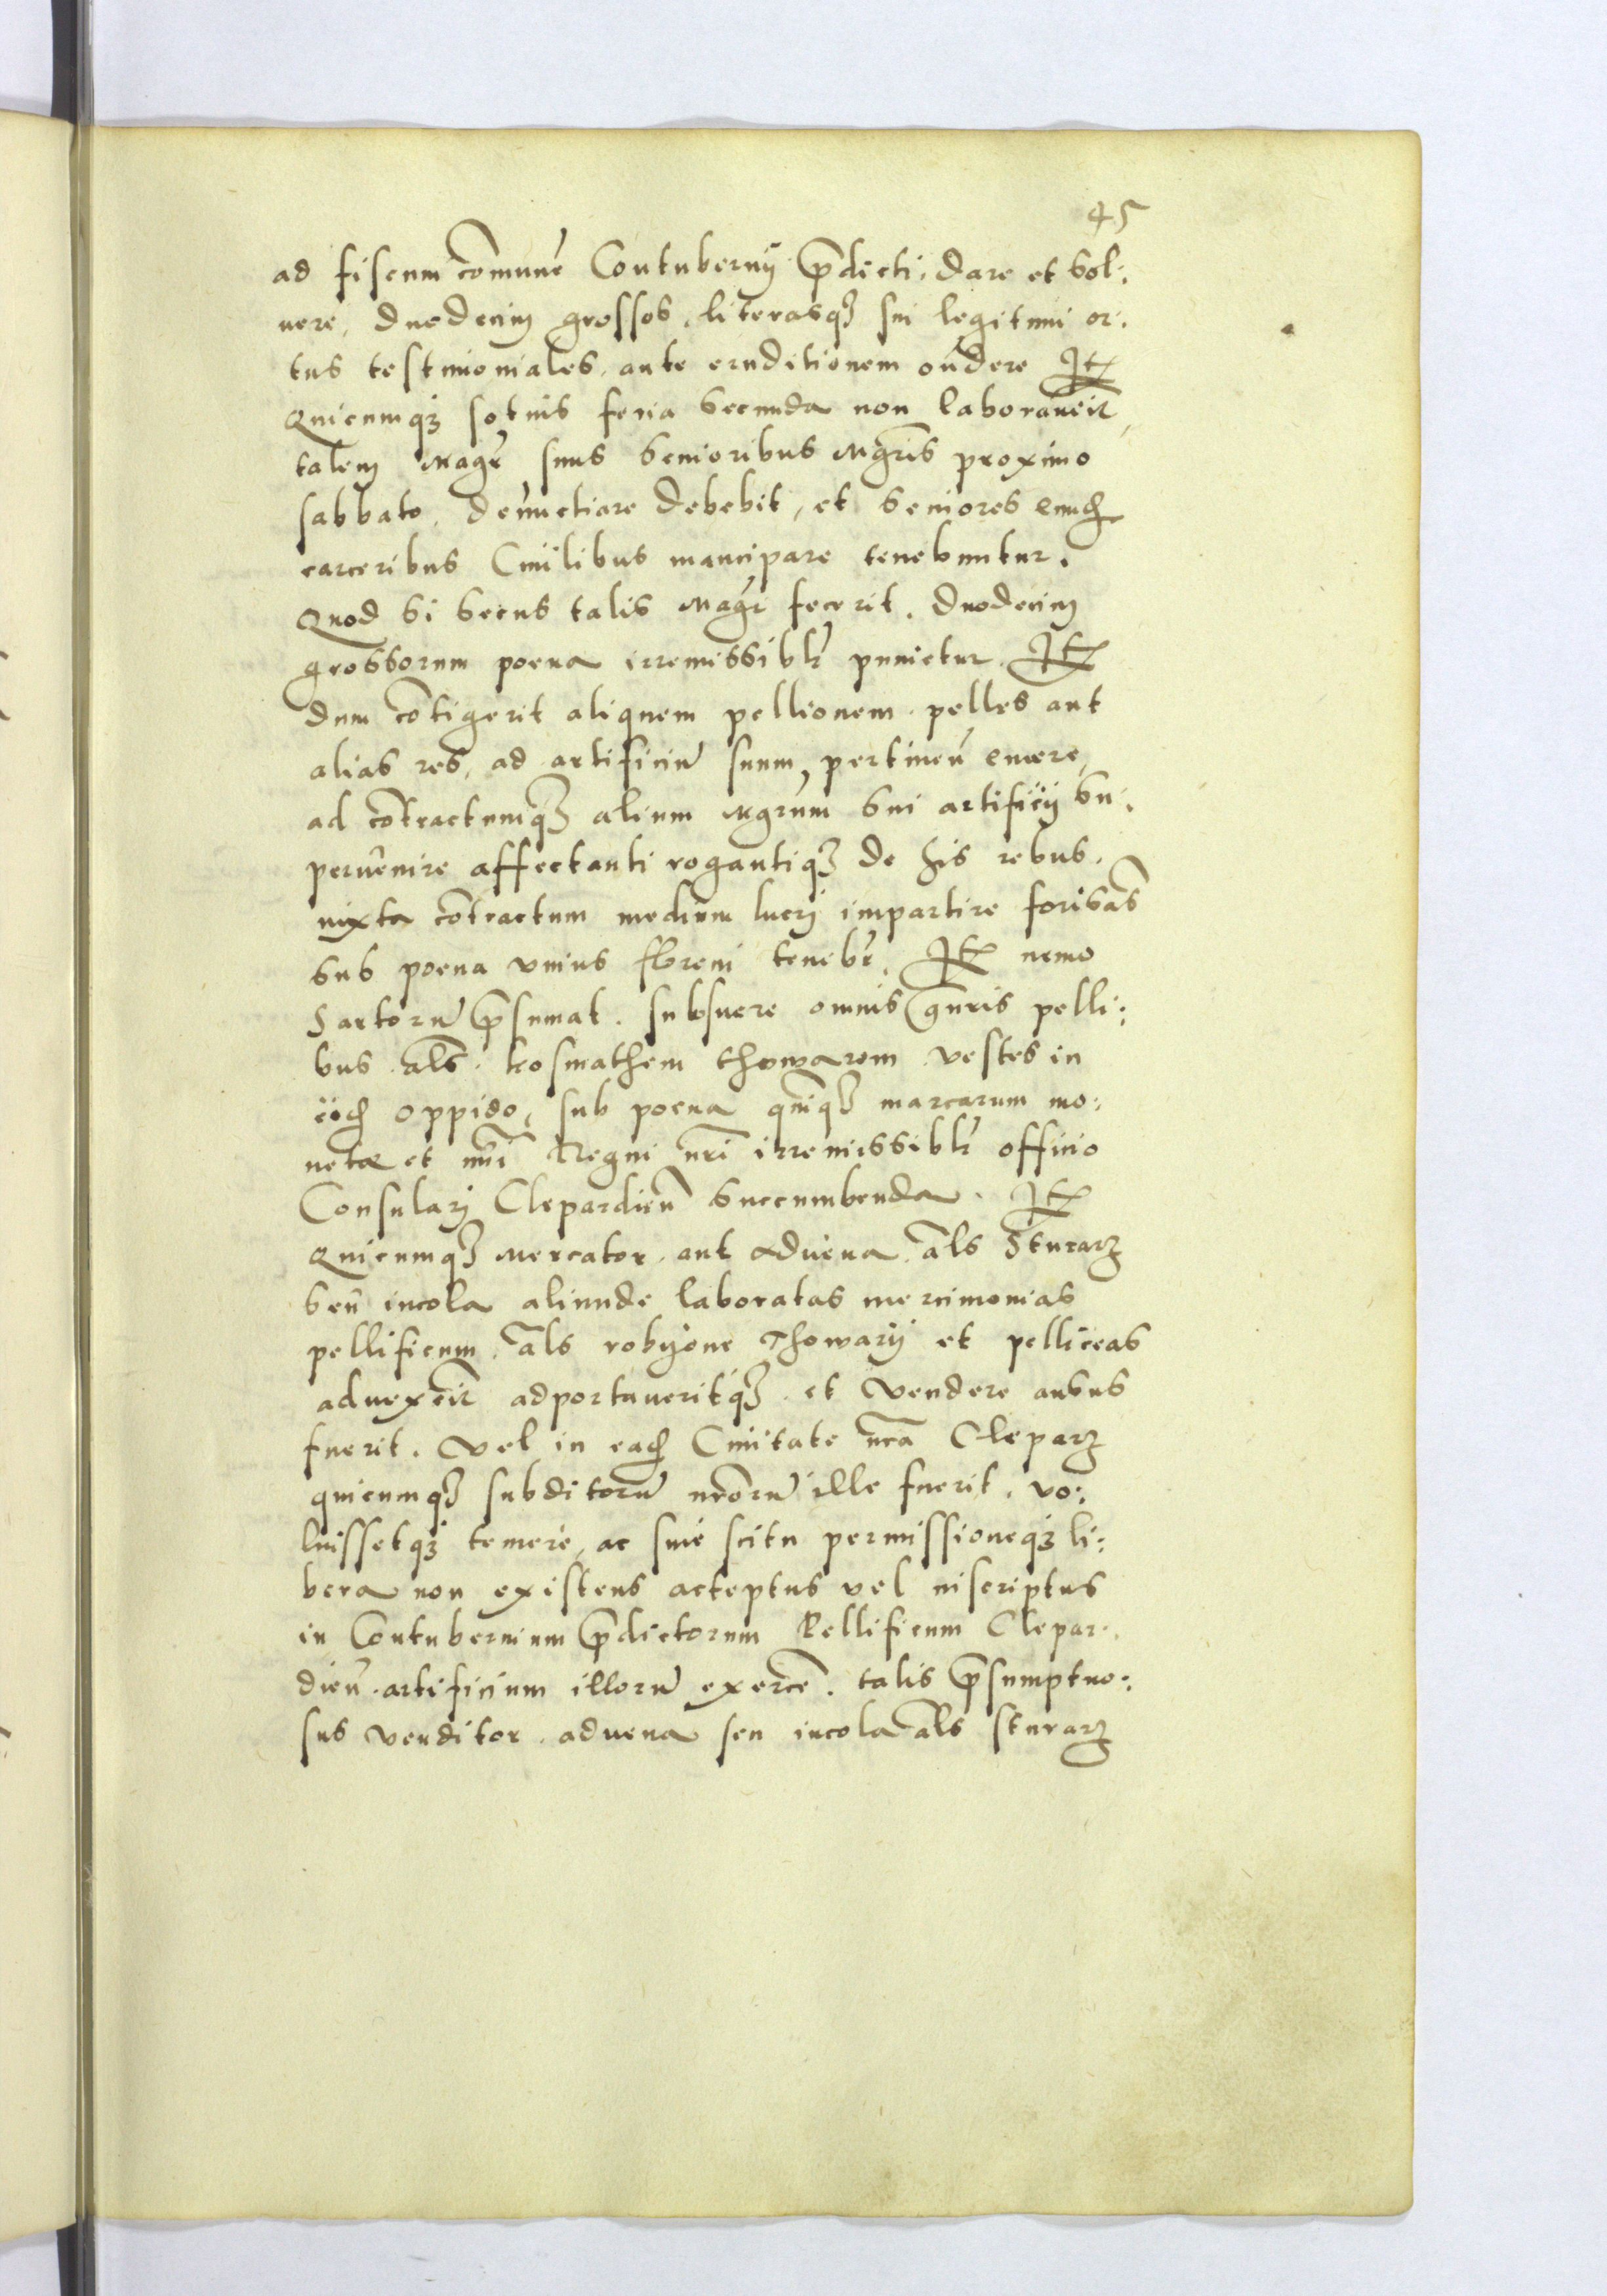 45
ad fiscum cōmune Contubernij p̄dicti, dare et sol:
uere, duodecim grossos, literasq₃ sui legitimi or:
tus testimoniales, ante eruditionem on̄dere Itē
Quicumq₃ sotius feria secunda non laborauerit,
talem Magr̄ suus senioribus Mgr̄is proximo
sabbato, denuncţiare debebit, et seniores eundē
carceribus Ciuilibus mancipare tenebuntur.
Quod si secus talis Magr̄ fecerit, duodecim
grossorum poena irremissiblr̄ punietur. Itē
dum cōtigerit aliquem pellionem pelles aut
alias res, ad artificiū suum pertineñ emere,
ad cōtractumq₃ alium Mgrum sui artificij su:
peruenire affectanti rogantiq₃ de his rebus,
iuxta cōtractum medium lucri impartire forisās
sub poena vnius floreni tenebr̄. Itē nemo
Sartorū p̄sumat, subsuere omnis gn̄ris pelli:
bus als̄ kosmathem thowarem vestes in
eodē oppido, sub poena quinq₃ marcarum mo:
netæ et nūi Regni nr̄i irremissiblr̄ officio
Consulari Clepardieñ succumbenda. Itē
Quicumq₃ Mercator aut aduena als̄ Sturarz
seu incola aliunde laboratas mercimonias
pellificum als̄ robijone Thowarij et pelliceas
aduexerit adportaueritq₃ et vendere ausus
fuerit, vel in eadē Ciuitate nr̄a Cleparz
quicumq₃ subditorū nr̄orū ille fuerit, vo:
luissetq₃ temere, ac sine scitu permissioneq₃ li:
bera non existens acceptus vel inscriptus
in Contubernium p̄dictorum Pellificum Clepar:
dieñ artificium illorū exercē, talis p̄sumptuo:
sus venditor aduena seu incola als̄ sturarz